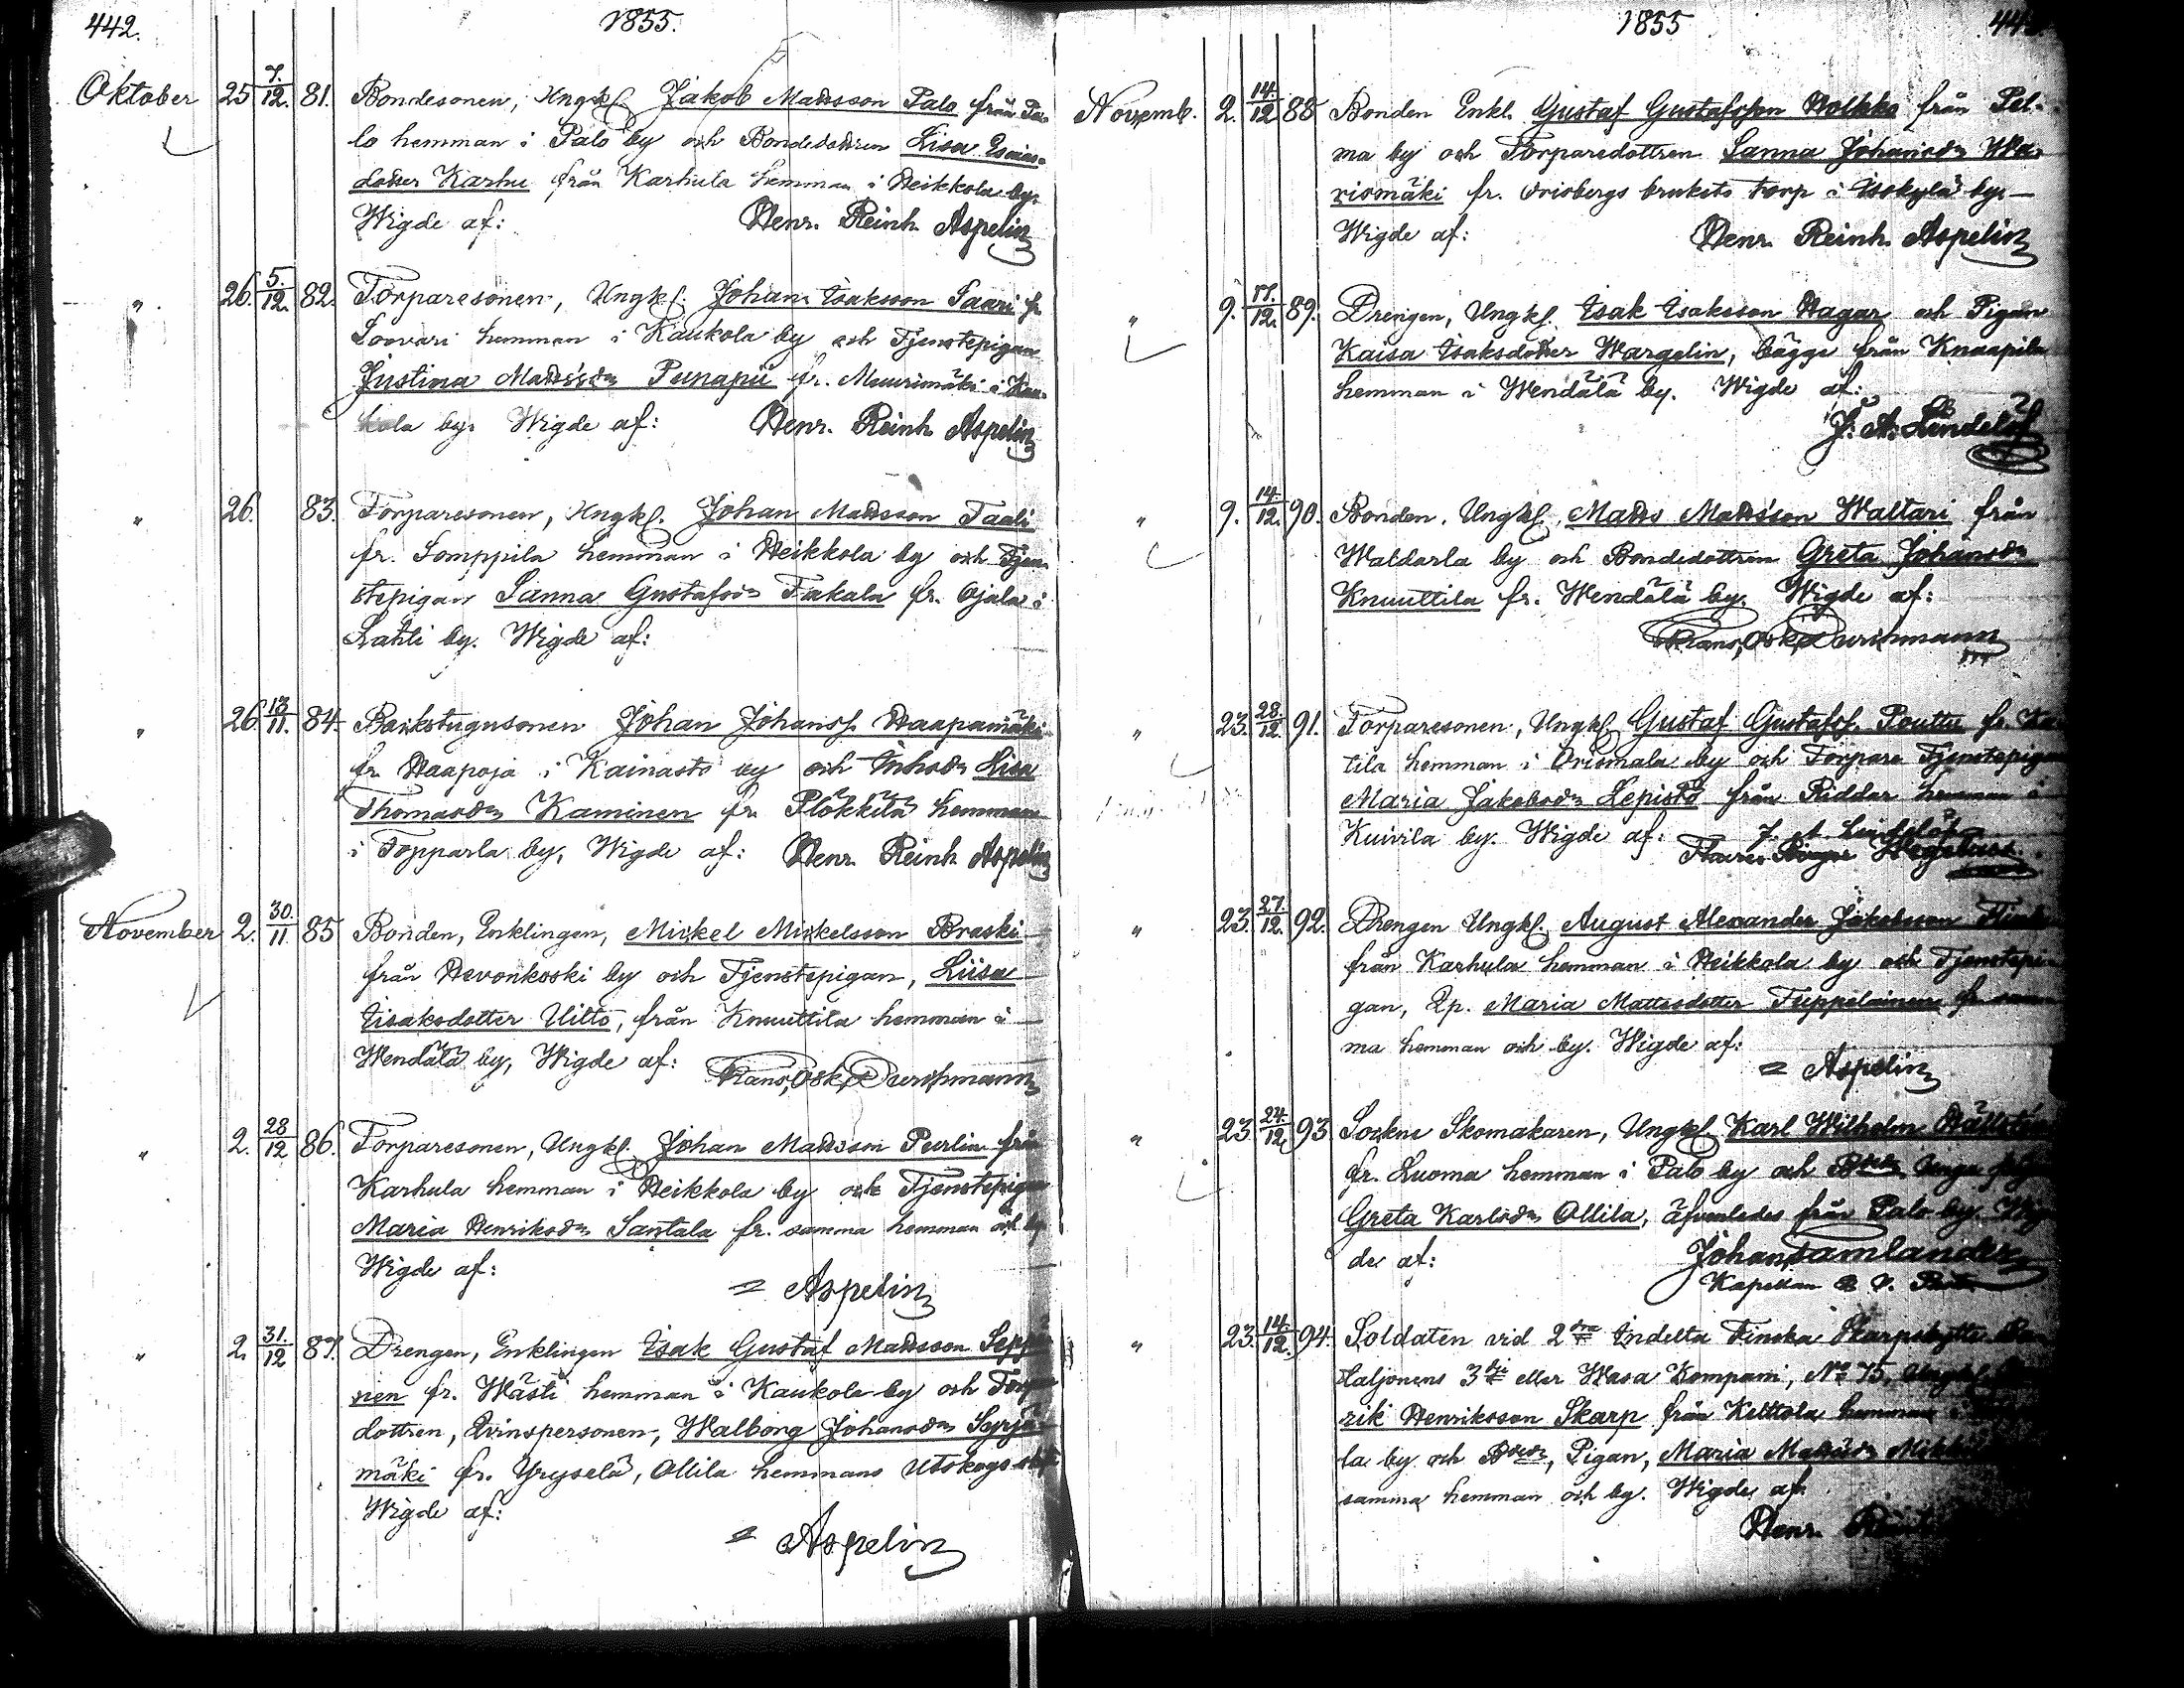 442. 1855.
Oktober 25 7./12. 81. Bondesonen, Ungkl. Jakob Mattsson Palo från Pa-
lo hemman i Palo by och Bondedottren Lisa Esaias-
dotter Karhu från Karhula hemman i Heikkola by.
Wigde af: Henr. Reinh. Aspelin
" 26. 5./12. 82. Torparesonen, Ungkl. Johan Isaksson Saari fr.
Soovari hemman i Kaukola by och Tjenstepigan
Justina Mattsdr Punapii fr. Muurimäki i Kau-
kola by. Wigde af: Henr. Reinh. Aspelin
" 26. 83. Torparesonen, Ungkl. Johan Mattsson Taali
fr. Somppila hemman i Heikkola by och Tjen-
stepigan Sanna Gustafsdr Takala fr. Ojala i
Lahti by. Wigde af:
" 26. 13/11. 84. Backstugusonen Johan Johansf. Haapamäki
fr. Haapoja i Kainasto by och Inhsdr Lisa
Thomasdr Kaminen fr. Plökkilä hemman
i Topparla by, Wigde af: Henr. Reinh. Aspelin
November 2. 30./11. 85 Bonden, Enklingen, Mickel Mickelsson Braski
från Hevonkoski by och Tjenstepigan, Liisa
Iisaksdotter Uitto, från Knuuttila hemman i
Wendälä by, Wigde af: Frans, Osk. Durchmann
" 2. 28/12 86. Torparesonen, Ungkl. Johan Mattsson Perlin från
Karhula hemman i Heikkola by och Tjenstepigan
Maria Henriksdr Santala fr. samma hemman och by
Wigde af:
= Aspelin
" 2. 31./12 87. Drengen, Enklingen Isak Gustaf Mattsson Seppi-
nen fr. Wästi hemman i Kaukola by och Torp
dottren, Qvinspersonen, Walborg Johansdr Syrjä-
mäki fr. Yryselä, Ollila hemmans Utskogs
Wigde af:
= Aspelin
1855
Novemb. 2. 14./12 88 Bonden Enkl. Gustaf Gustafsson Wolkko från Pel-
ma by och Torparedottren Sanna Johansdr Wa-
rismäki fr. Orisbergs brukets torp i Isokylä by.
Wigde af: Henr. Reinh. Aspelin
" 9. 17./12. 89. Drengen, Ungkl. Isak Isaksson Hagar och Pigan
Kaisa Isaksdotter Wargelin, bägge från Knaapila
hemman i Wendälä by. Wigde af:
J. A. Lindelöf
" 9. 14./12. 90. Bonden, Ungkl. Matts Mattsson Waltari från
Waldarla by och Bondedottren Greta Johansdr
Knuuttila fr. Wendälä by. Wigde af:
Frans, Osk. Durchmann
" 23. 28./12. 91. Torparesonen, Ungkl. Gustaf Gustafsf. Pouttu fr.
tila hemman i Orismala by och Torpare Tjenstepigan
Maria Jakobsdr Lepistö från Riddar hemman i
Kuivila by. Wigde af: J. A. Lindelöf
" 23. 27./12. 92. Drengen Ungkl. August Alexander Jakobsson
från Karhula hemman i Heikkola by och Tjenstepi-
gan, Qp. Maria Mattsdotter Tuppelainen fr. sam-
ma hemman och by. Wigde af:
= Aspelin
" 23. 24./12 93. Sockne Skomakaren, Ungkl. Karl Wilhelm
fr. Luoma hemman i Palo by och Unga
Greta Karlsdr Ollila, äfvenledes från Palo by. Wig-
de af: Johan Samlander
Kapellan
" 23. 14./12. 94. Soldaten vid 2dra Indelta Finska Skarpskytte Ba-
taljonens 3dje eller Wasa Kompani, No 75, Ungkl.
rik Henriksson Skarp från Kelttola hemman
la by och Pigan, Maria Mattsdr
samma hemman och by. Wigde af:
Henr.